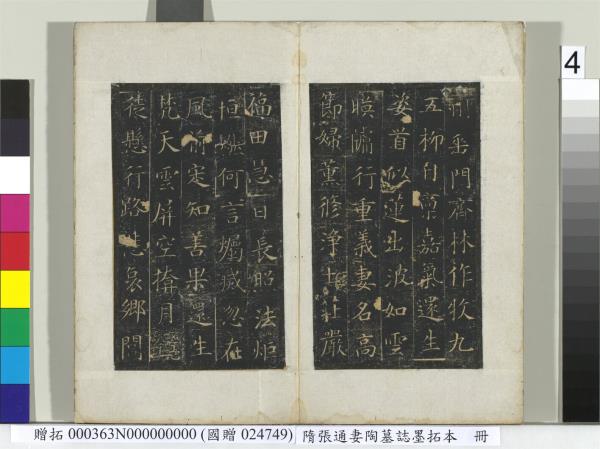 垂門齊林作牧九
五柳自稟嘉氣還生
姿首似蓮出波如雲
暎牖行重義妻名高
節婦薰修淨土莊嚴
福田慧日長昭法炬
恒然何言爥滅忽在
風前定知善果還生
梵天雲屏空揜月
徒懸行路悲哀鄉閭
4
贈拓 000363N000000000 (國贈 024749) 隋張通妻陶墓誌墨拓本 冊